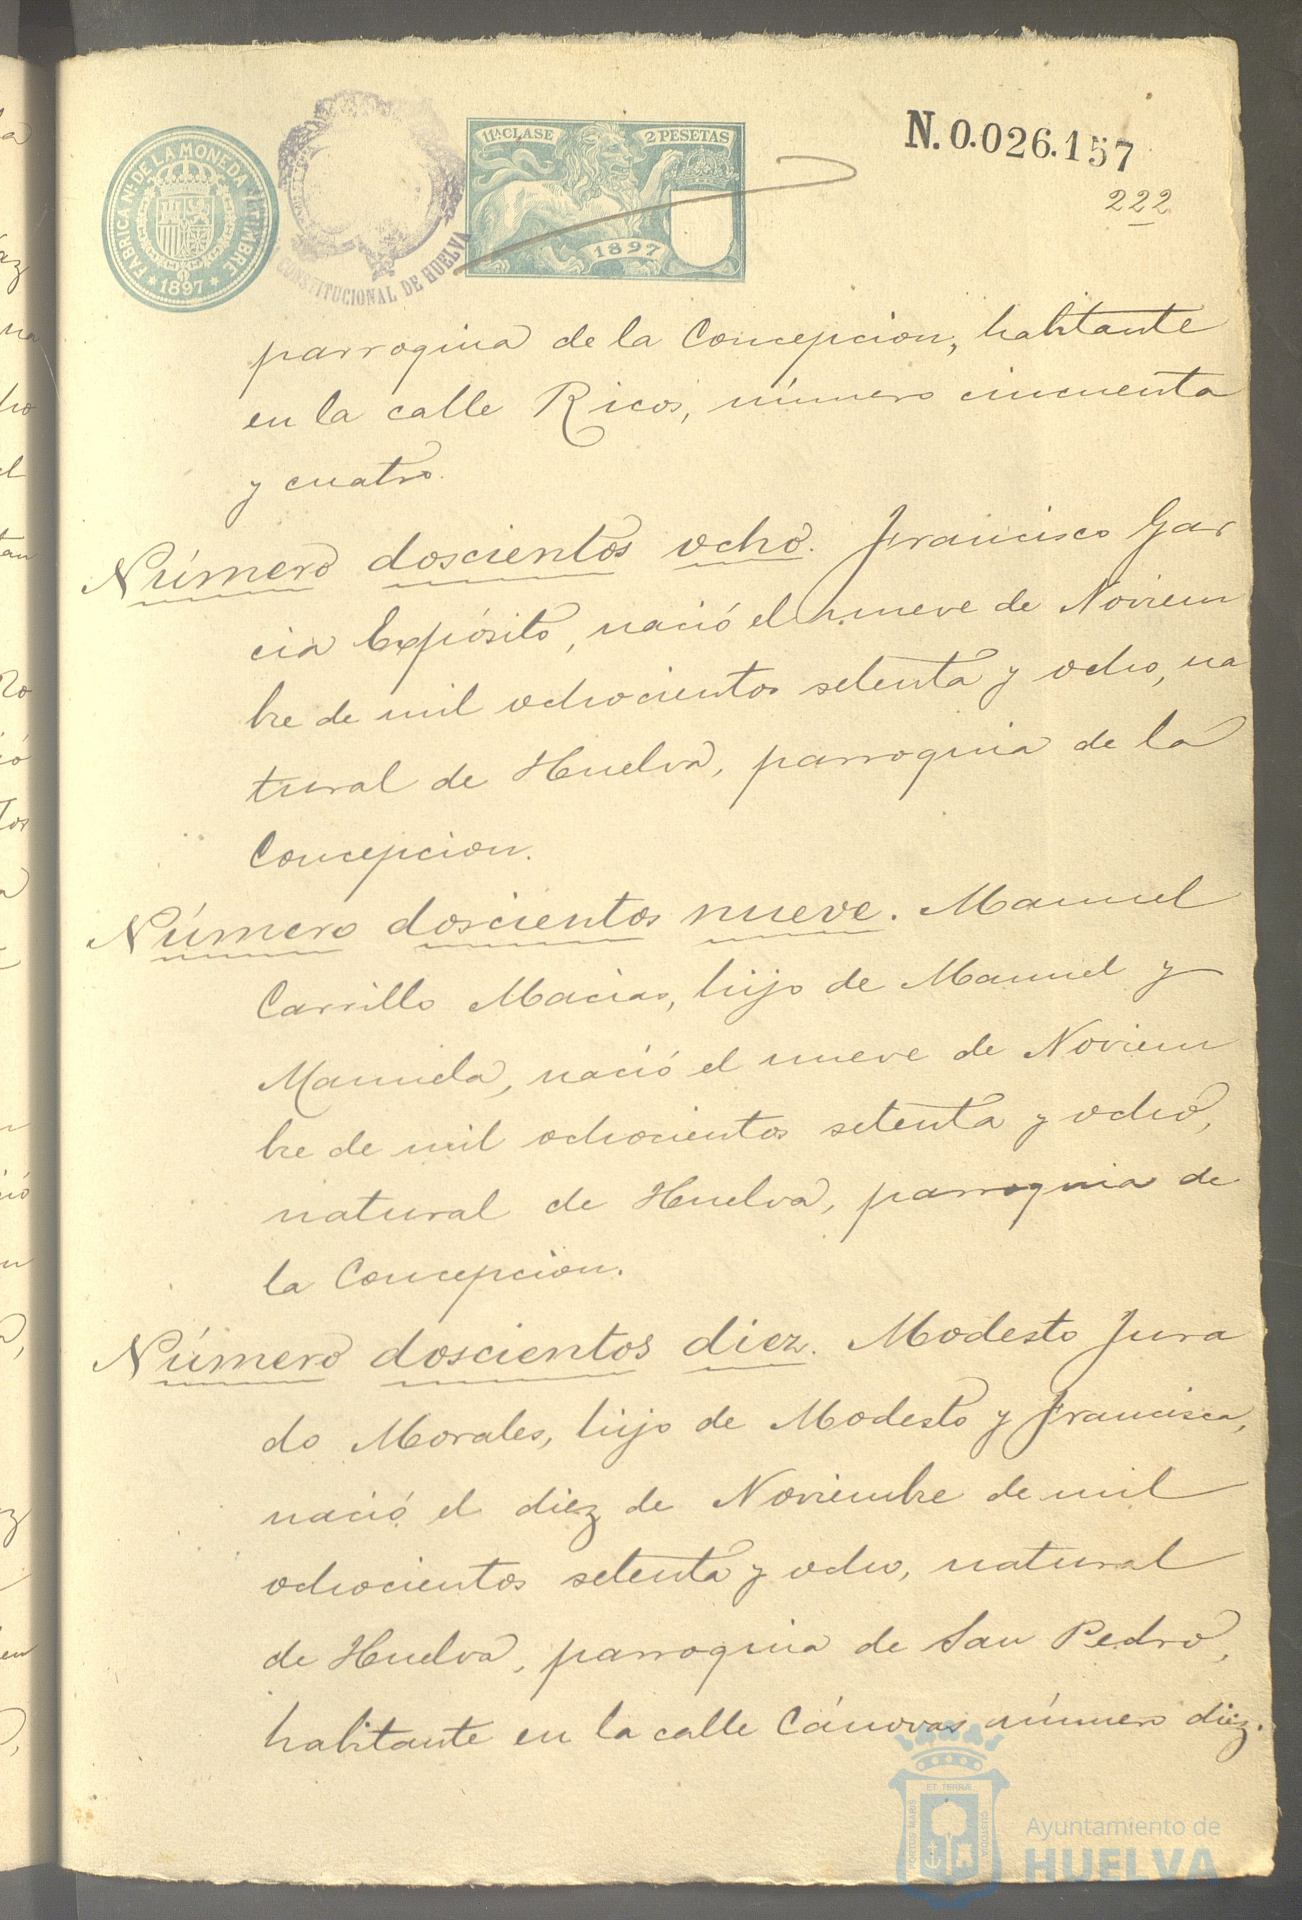 FABRICA Nl. DE LA MONEDA Y TIMBRE
* 1897 *
CONSTITUCIONAL DE HUELVA
11ª CLASE
2 PESETAS
1897
N.0.026.157
222
parroquia de la Concepcion, habitante
en la calle Ricos, número cincuenta
y cuatro.
Número doscientos ocho. Francisco Gar
cia Expósito, nació el nueve de Noviem
bre de mil ochocientos setenta y ocho, na
tural de Huelva, parroquia de la
Concepcion.
Número doscientos nueve. Manuel
Carrillo Macias, hijo de Manuel y
Manuela, nació el nueve de Noviem
bre de mil ochocientos setenta y ocho,
natural de Huelva, parroquia de
la Concepcion.
Número doscientos diez. Modesto Jura
do Morales, hijo de Modesto y Francisca,
nació el diez de Noviembre de mil
ochocientos setenta y ocho, natural
de Huelva, parroquia de San Pedro,
habitante en la calle Cánovas número diez.
ET TERRÆ
PORTUS MARIS
CUSTODIA
Ayuntamiento de
HUELVA